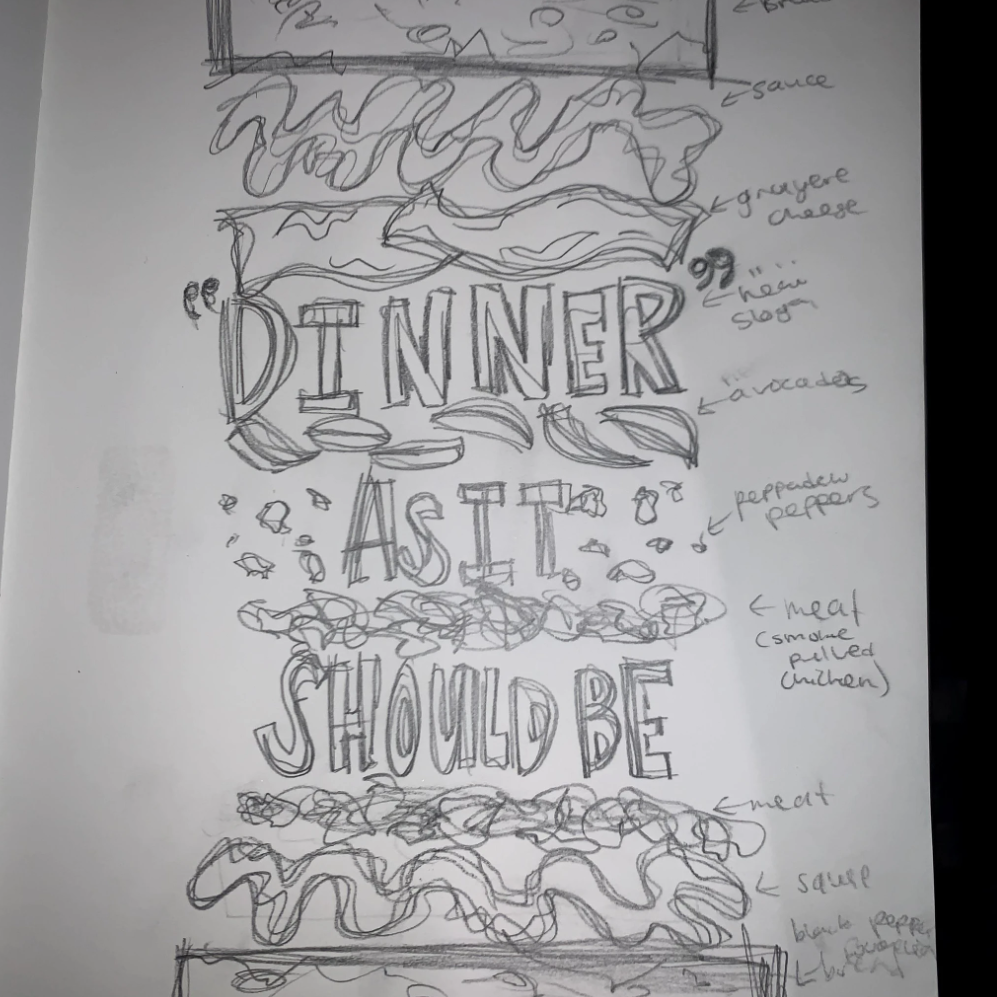 sauce
gruyere
cheese
"DINNER"
slogan
avocados
AS IT
peppadew
peppers
meat
(smoke
pulled
chicken)
SHOULD BE
meat
sauce
black pepper